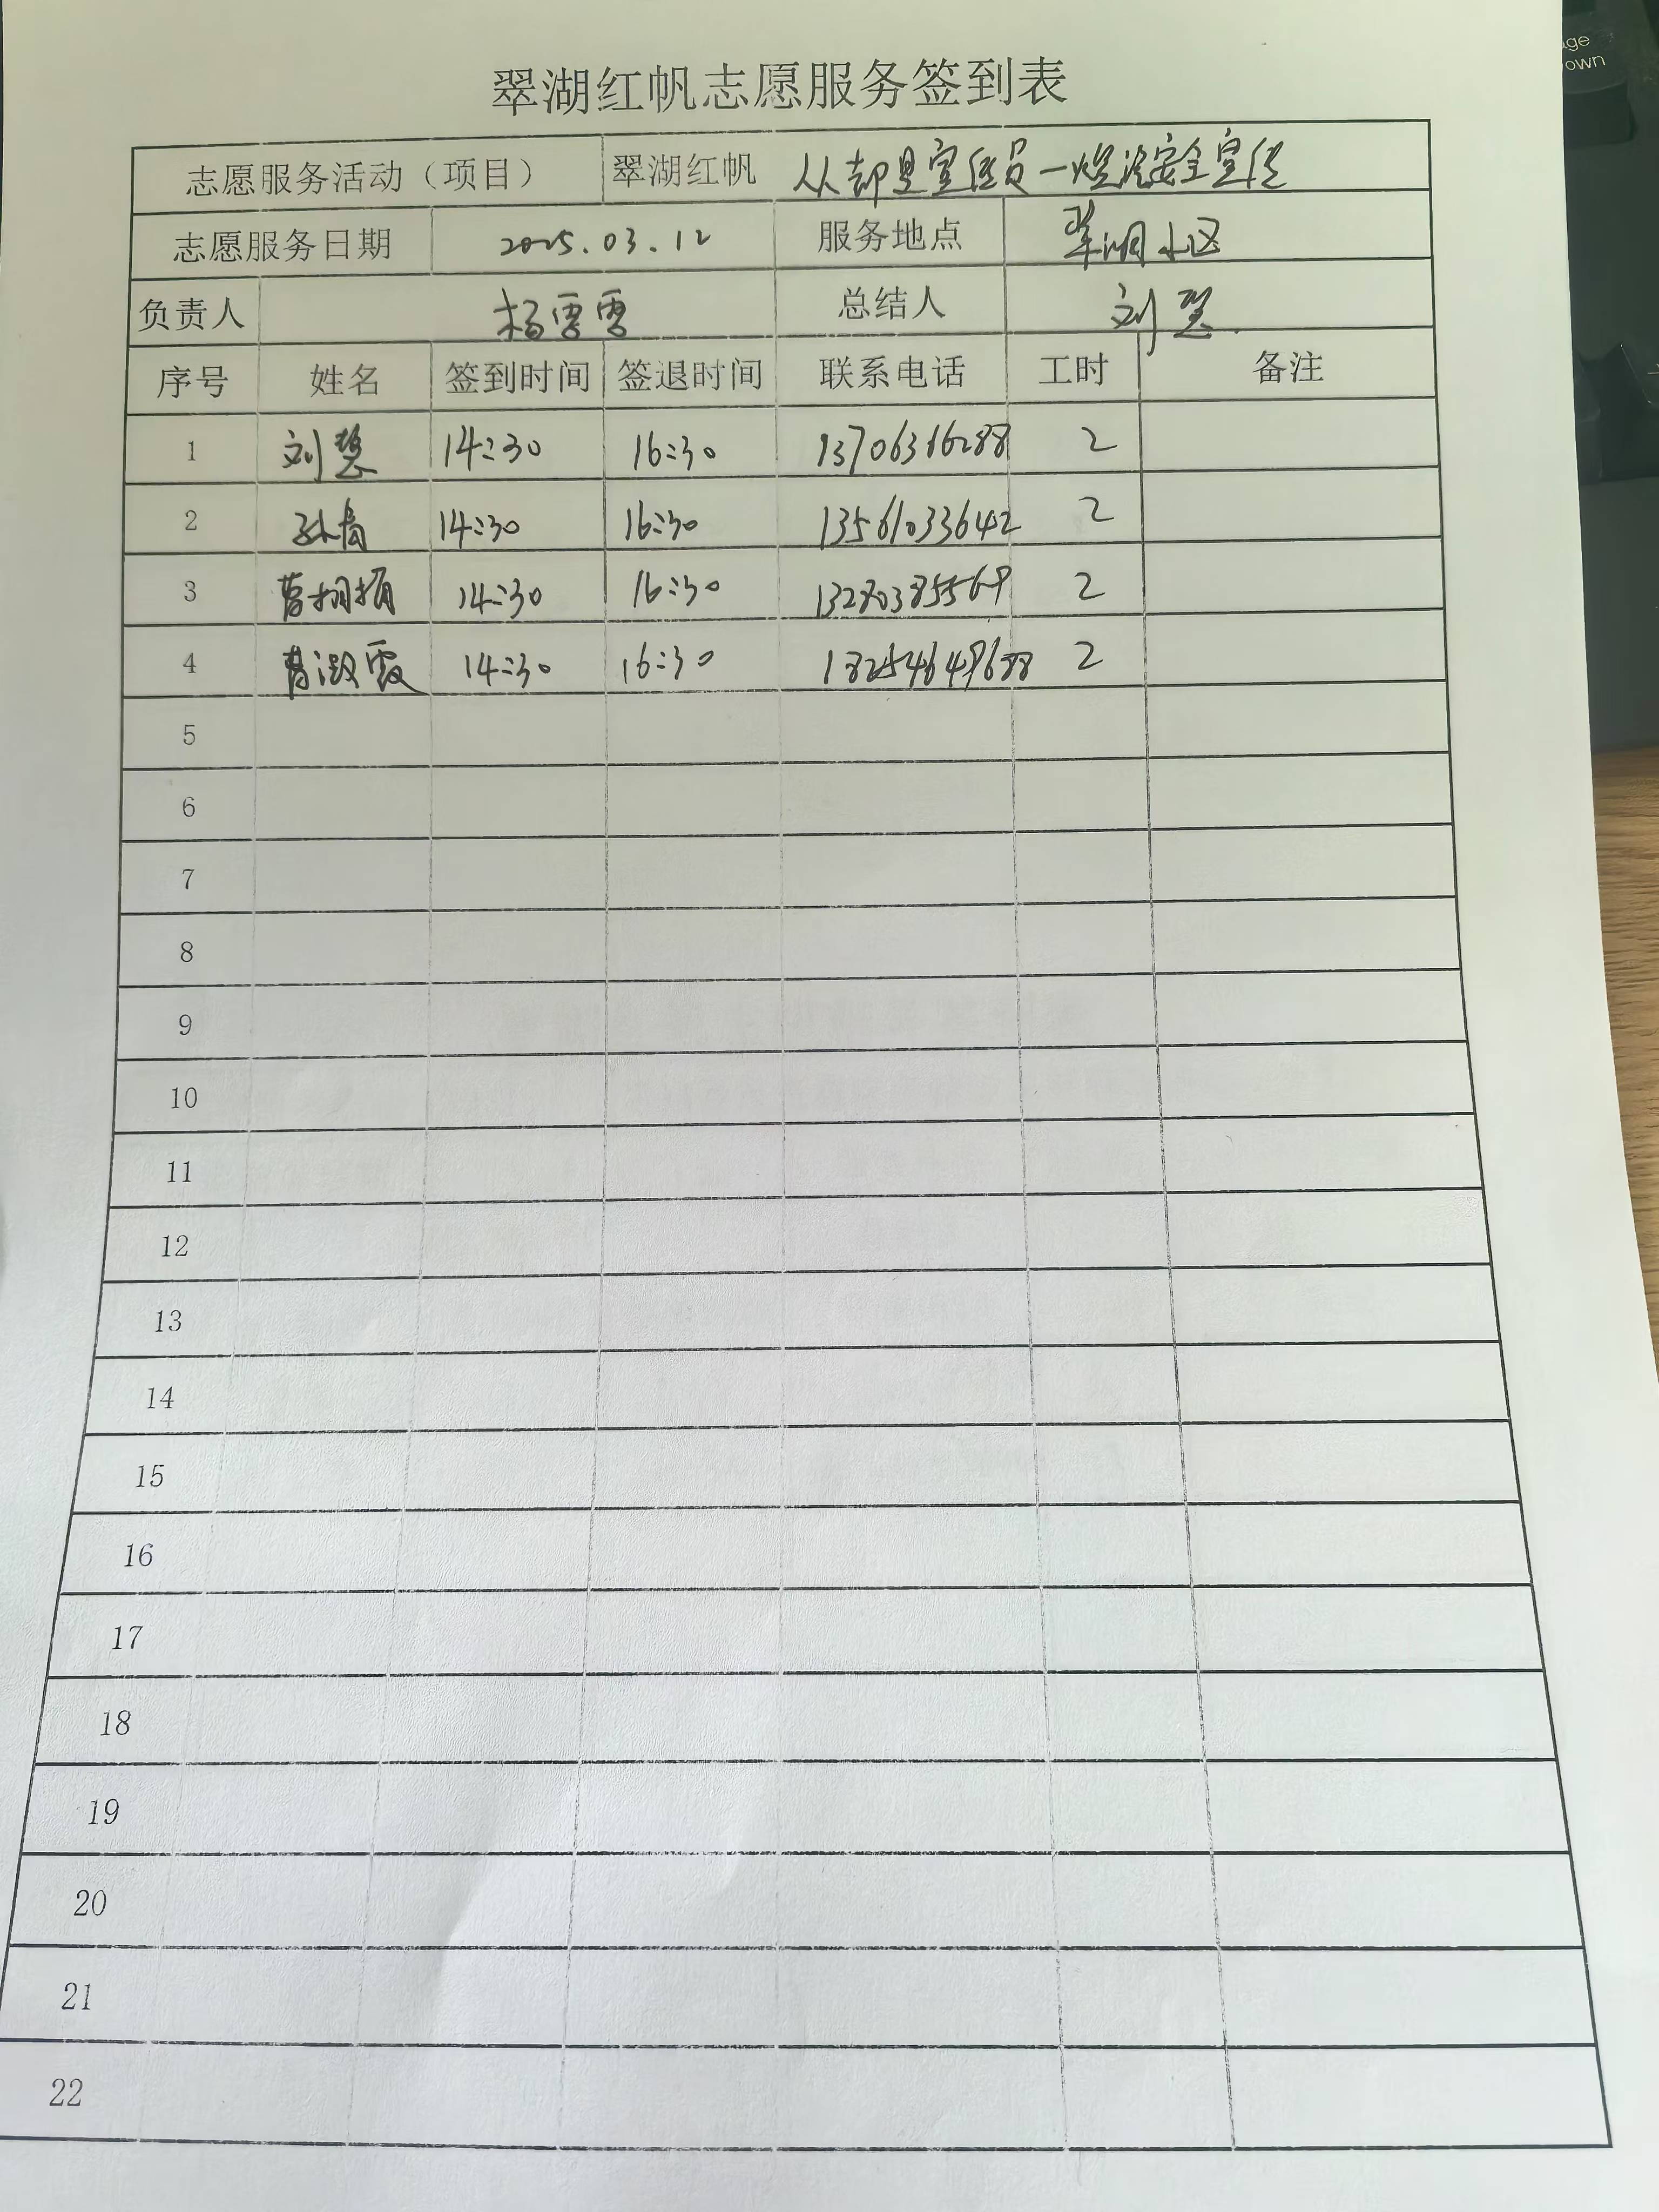 翠湖红帆志愿服务签到表
志愿服务活动（项目） 翠湖红帆 人人都是宣传员一燃汽安全宣传
志愿服务日期 2025.03.12 服务地点 翠湖小区
负责人 杨雪雪 总结人 刘慧
序号 姓名 签到时间 签退时间 联系电话 工时 备注
1 刘慧 14:30 16:30 13706366288 2
2 孙倩 14:30 16:30 13561033642 2
3 曹 14:30 16:30 13280385569 2
4 曹淑霞 14:30 16:30 18254649688 2
5
6
7
8
9
10
11
12
13
14
15
16
17
18
19
20
21
22